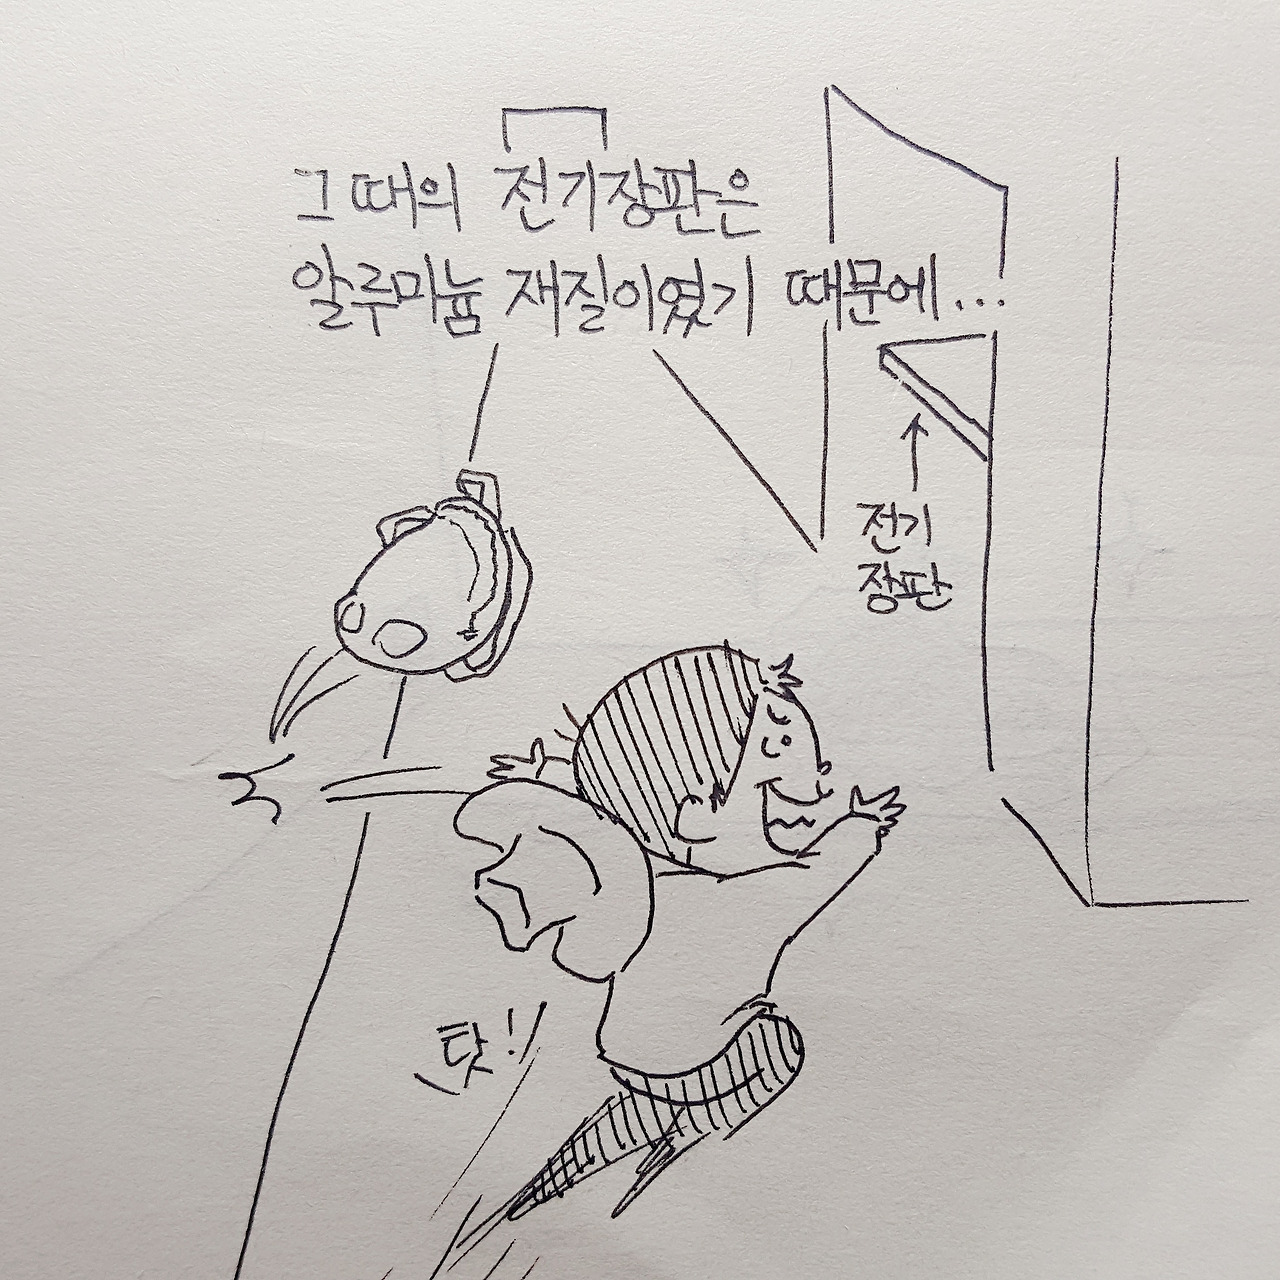 그 때의 전기장판은
알루미늄 재질이였기 때문에...
전기
장판
탓!